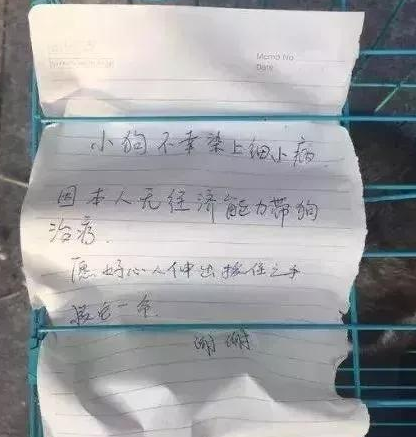 Memo No
Date
小狗不幸染上细小病
因本人无经济能力带狗
治疗.
愿好心人伸出援住之手
救它一命.
谢谢